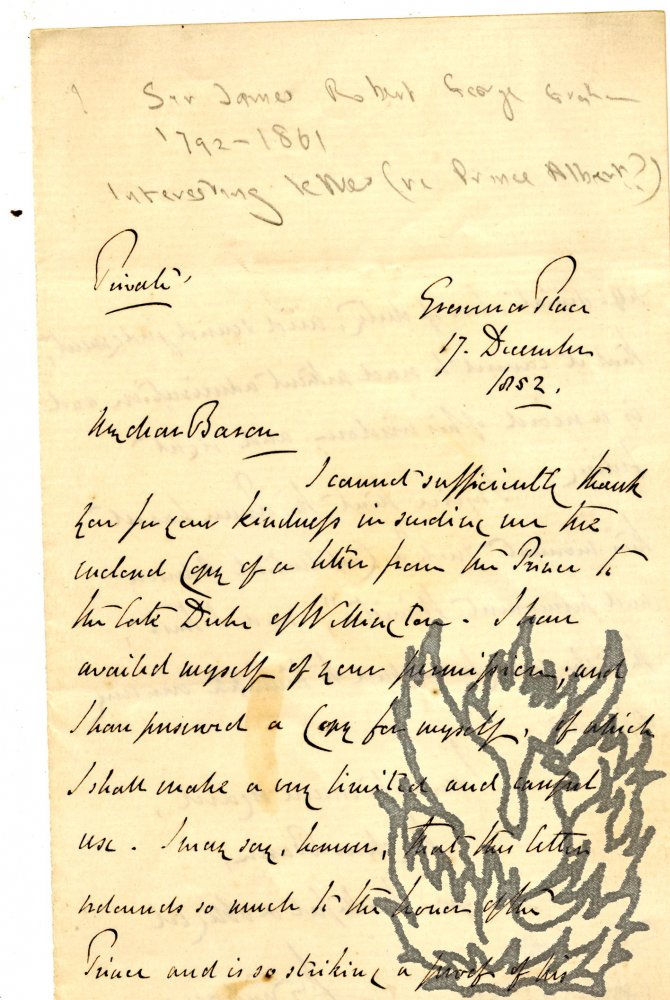 Sir James Robert George Graham
1792-1861
Interesting letter (re Prince Albert?)
Private
Grosvenor Place
17. December
1852.
My dear Baron
I cannot sufficiently thank
you for your kindness in sending me the
enclosed Copy of a letter from the Prince to
the late Duke of Wellington. I have
availed myself of your permission; and
I have preserved a Copy for myself, of which
I shall make a very limited and careful
use. I may say, however, that this letter
redounds so much to the honor of the
Prince and is so striking a proof of his